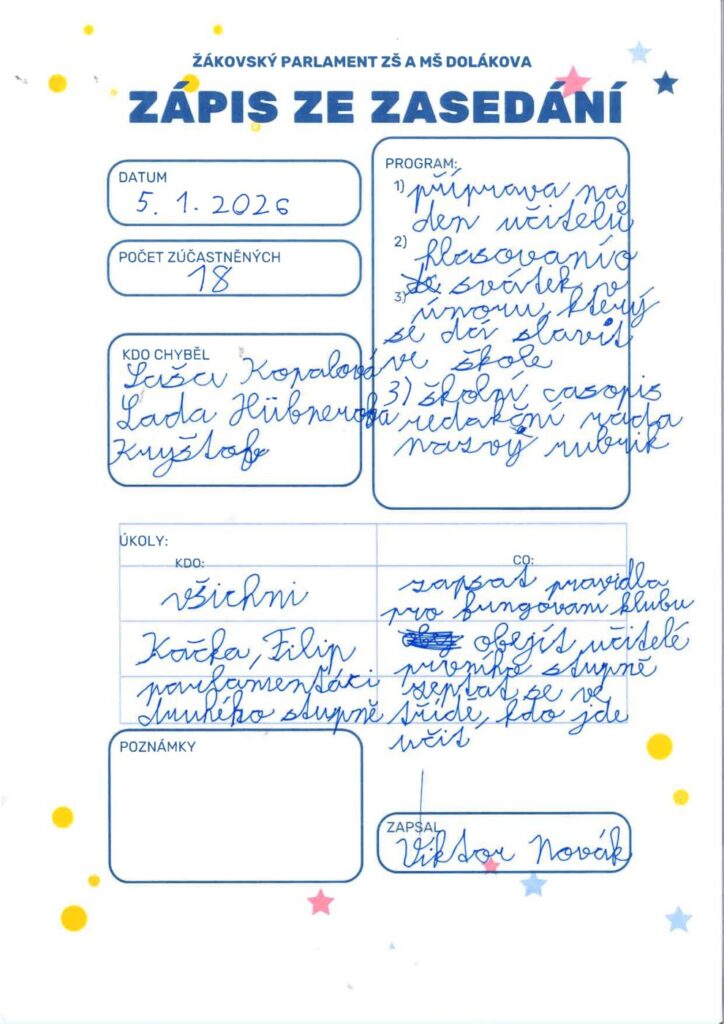 ŽÁKOVSKÝ PARLAMENT ZŠ A MŠ DOLÁKOVA
ZÁPIS ZE ZASEDÁNÍ
DATUM
5. 1. 2026
POČET ZÚČASTNĚNÝCH
18
KDO CHYBĚL
Saša Kopalová
Lada Hübnerová
Kryštof
PROGRAM:
1) příprava na
den učitelů
2) hlasování o
3) svátek v
únoru, který
se dá slavit
ve škole
3) školní časopis
redakční rada
nazvý rubrik
ÚKOLY:
KDO:
CO:
všichni
zapsat pravidla
pro fungování klubu
Kačka, Filip
obejít učitelé
prvního stupně
parlamenťáci
druhého stupně
zeptat se ve
třídě, kdo jde
učit
POZNÁMKY
ZAPSAL
Viktor Novák